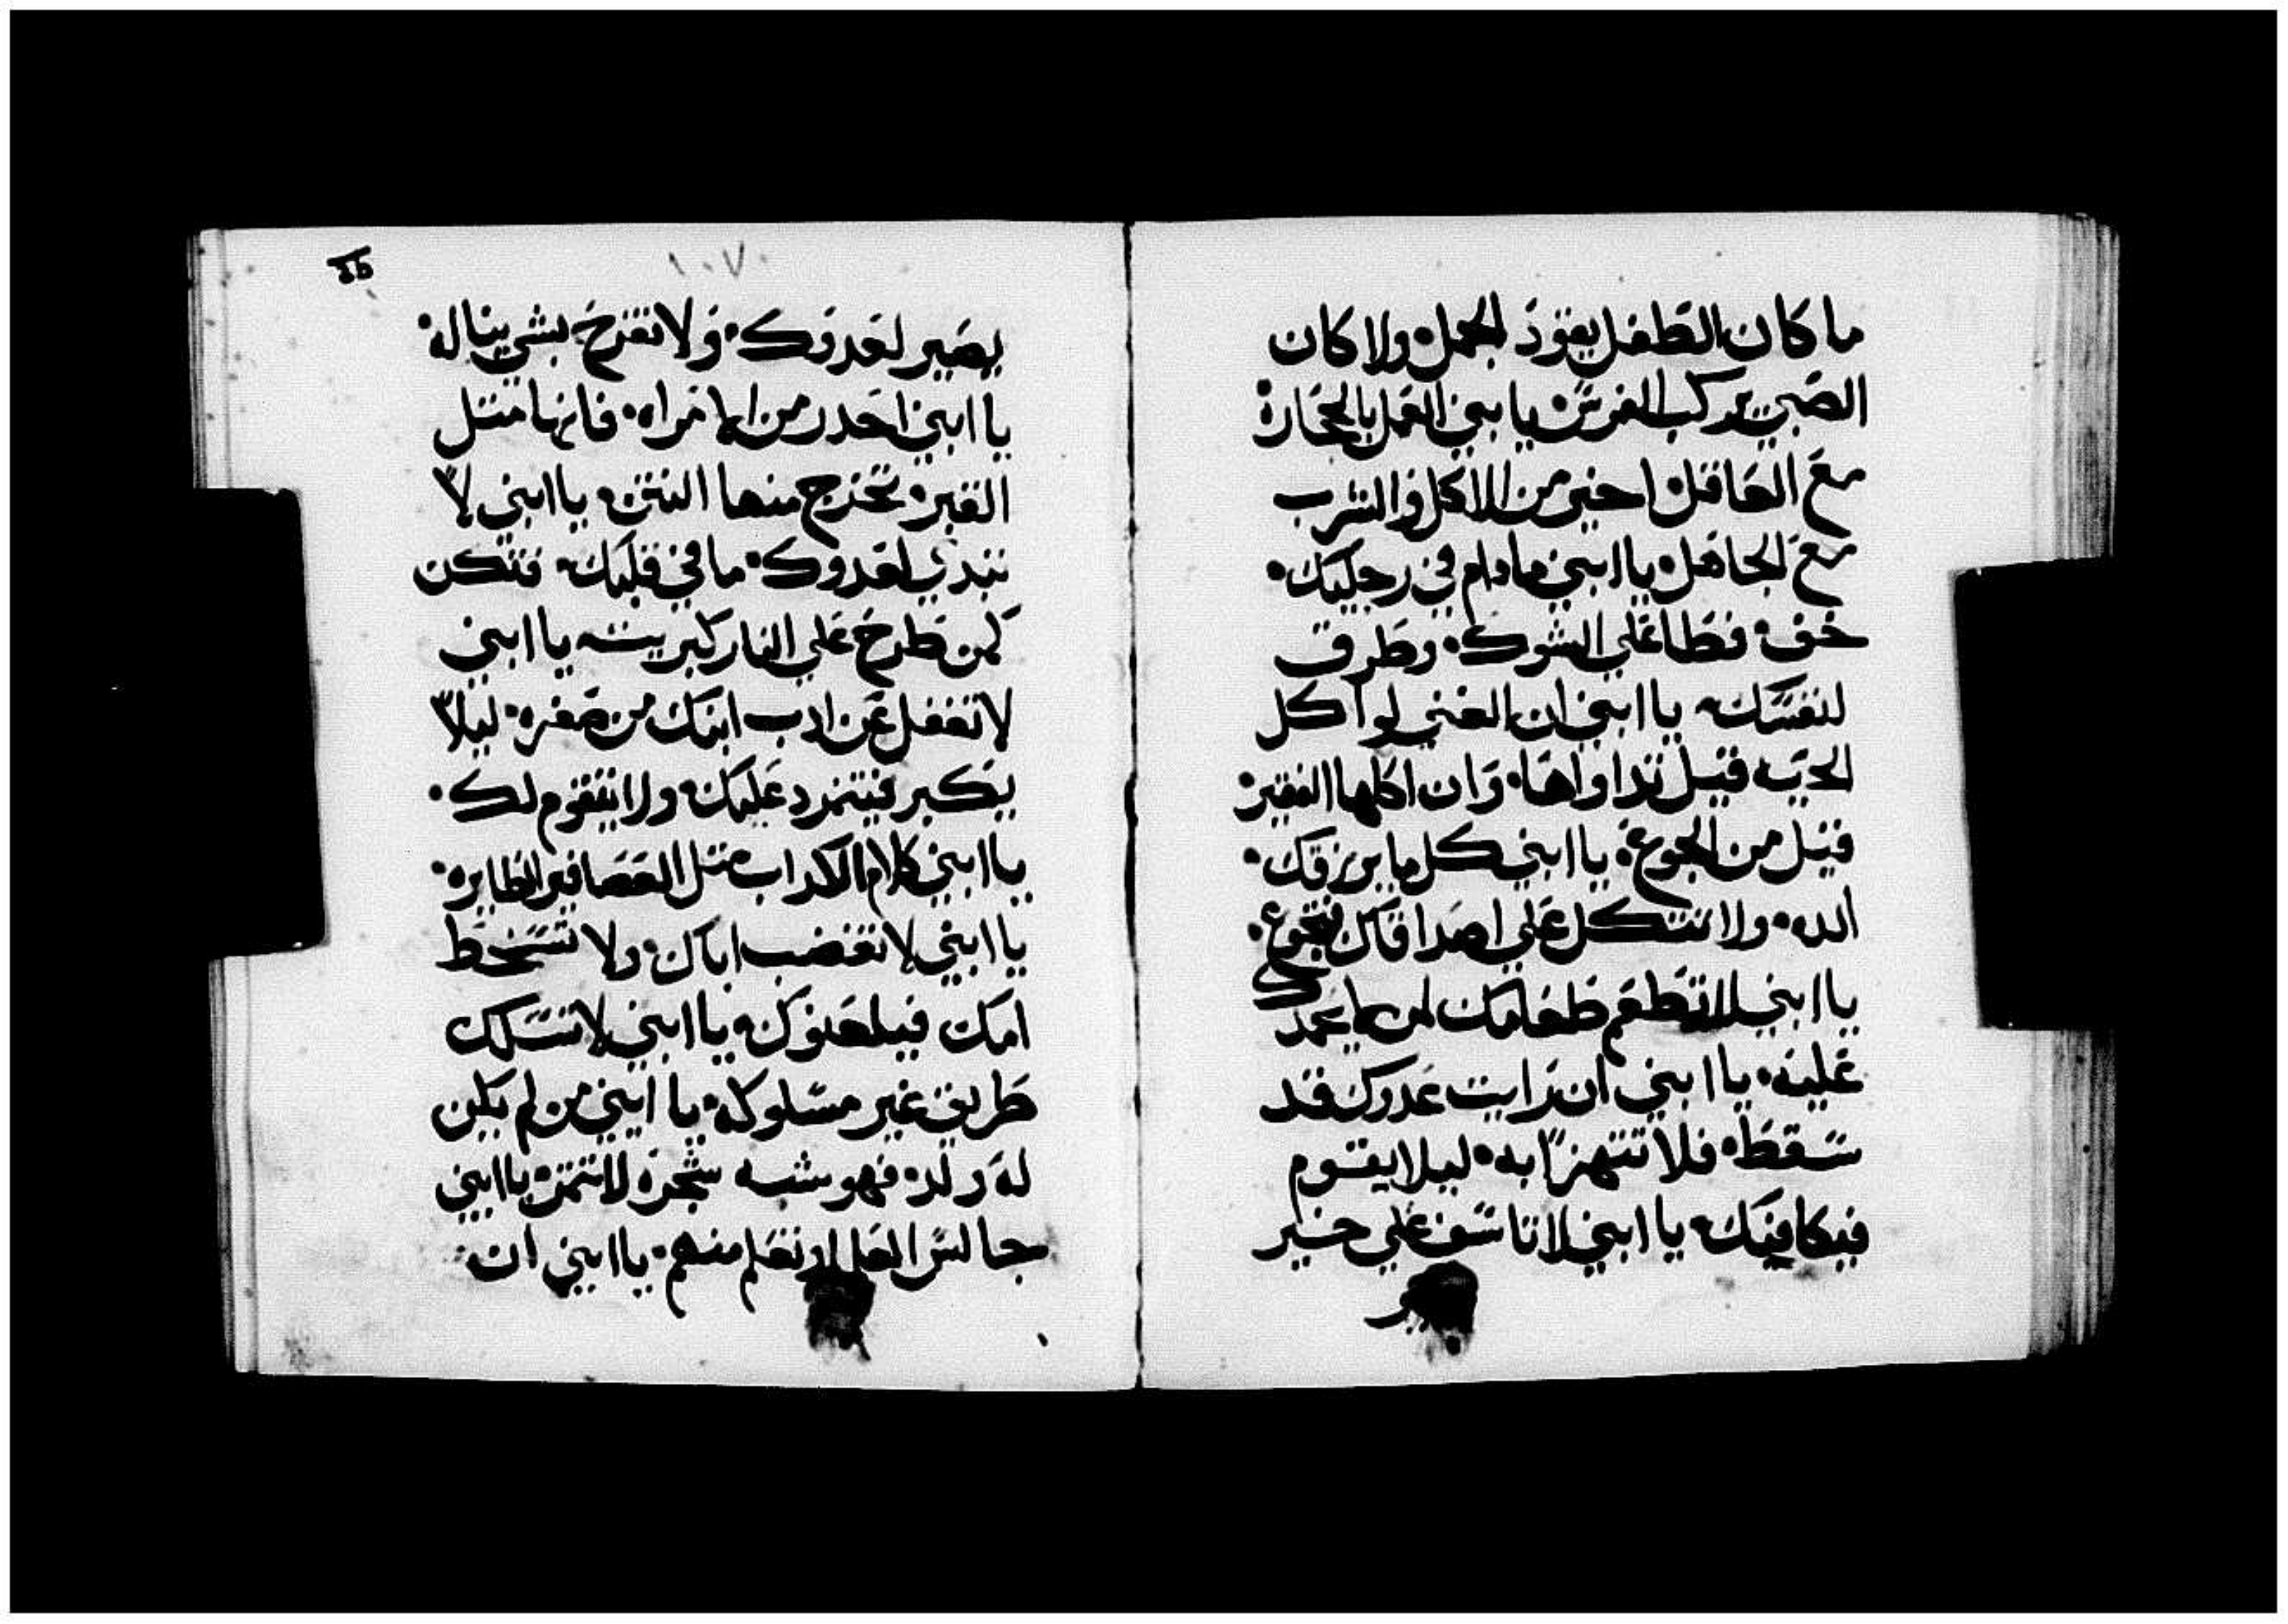 ما كان الطفل يقود الجمل ولا كان
الصبي يركب الفرس يا بني العمل بالحجارة
مع العاقل اخير من الاكل والشرب
مع الجاهل يا ابني ما دام في رجليك
خف فطا علي الشوك وطرق
لنفسك يا ابني ان الغني لو اكل
الحيه قيل تداواها وان اكلها الفقير
قيل من الجوع يا ابني كل ما يرزقك
الله ولا تتكل علي اصدقاك فتجوع
يا ابني لا تطعم طعامك لمن لا يحمدك
عليه يا ابني ان رايت عدوك قد
سقط فلا تتهزا به ليلا يقوم
فيكافيك يا ابني لا تاسف علي خير
يصير لعدوك ولا تفرح بشي يناله
يا ابني احدر من الامراه فانها متل
القبر تخرج منها النتن يا ابني لا
تبدي لعدوك ما في قلبك فتكن
كمن طرح علي النار كبريت يا ابني
لا تغفل عن ادب ابنك من صغره ليلا
يكبر فيتمرد عليك ولا يتقوم لك
يا ابني كلام الكداب متل العصافير الطايره
يا ابني لا تغضب اباك ولا تسخط
امك فيلعنوك يا ابني لا تسلك
طريق غير مسلوكه يا ابني من لم يكن
له ولد فهو شبه شجرة لا تتمر يا ابني
جالس العلما وتعلم منهم يا ابني ان
١٠٧